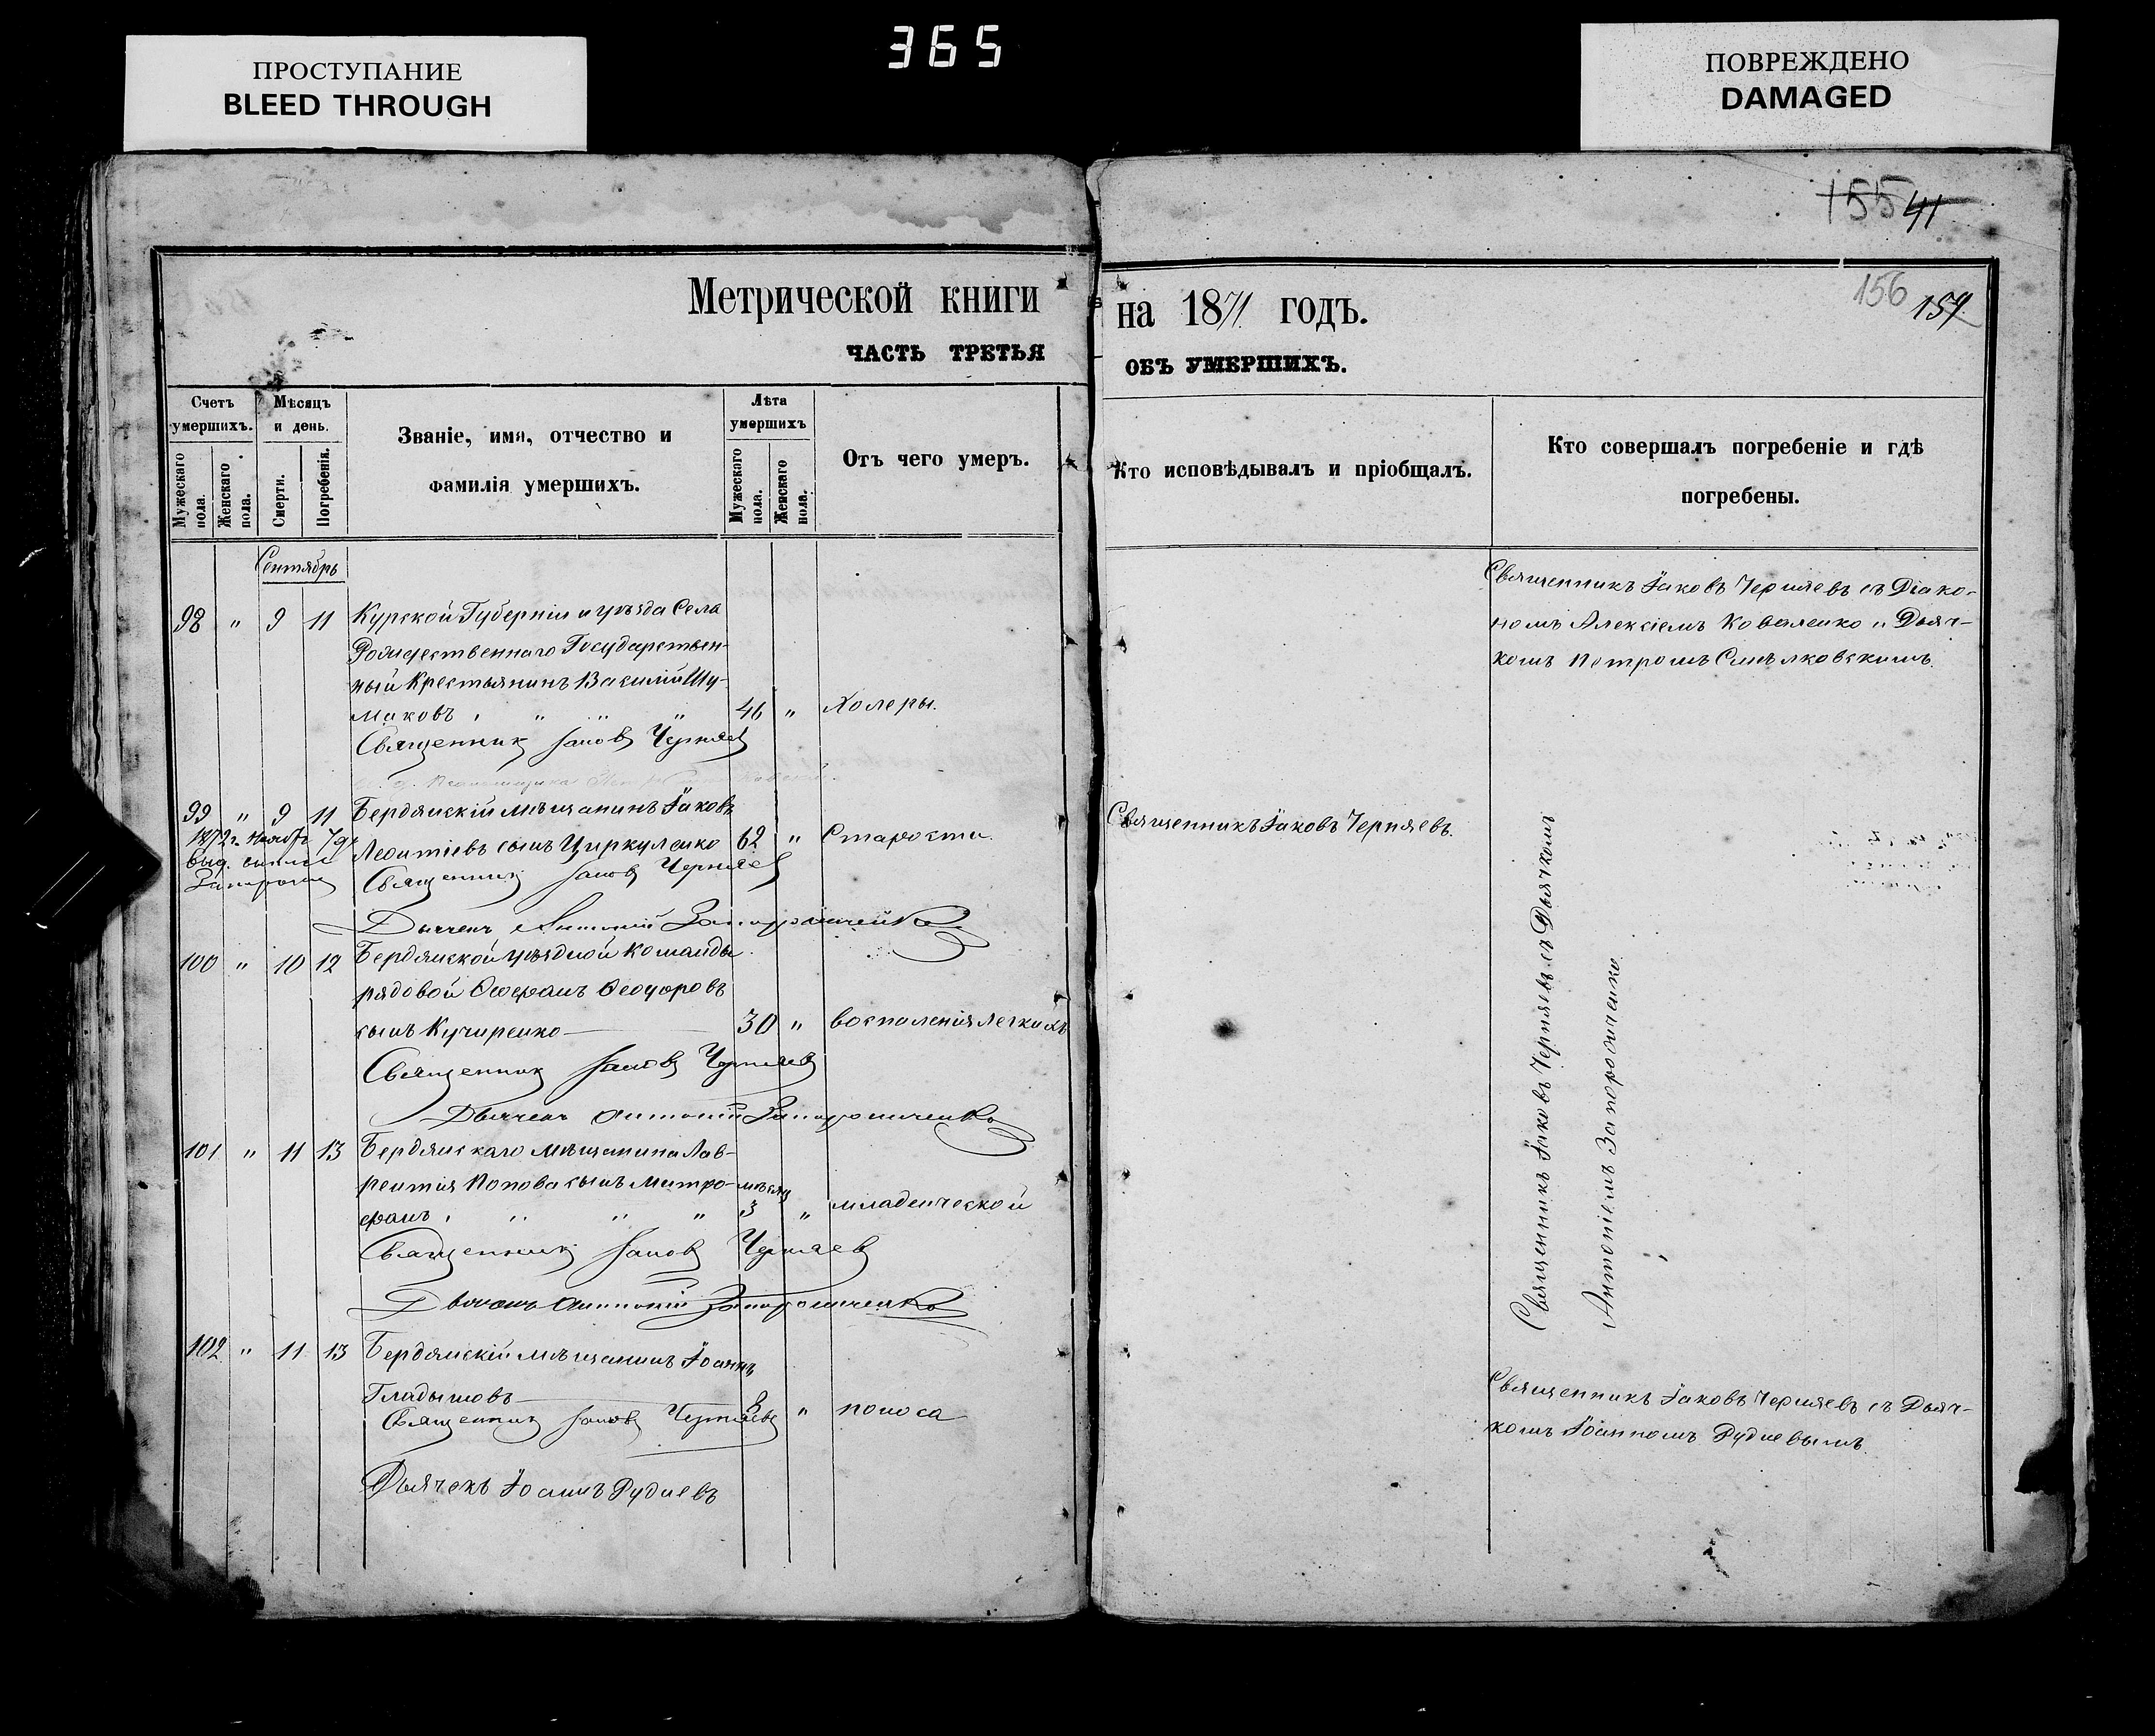 365
ПРОСТУПАНИЕ
BLEED THROUGH
ПОВРЕЖДЕНО
DAMAGED
155 41
156 157
Метрической книги
на 1871 годъ.
ЧАСТЬ ТРЕТЬЯ
ОБЪ УМЕРШИХЪ.
Счетъ умершихъ.
Мѣсяцъ и день.
Званіе, имя, отчество и
фамилія умершихъ.
Лѣта умершихъ
Отъ чего умеръ.
Кто исповѣдывалъ и пріобщалъ.
Кто совершалъ погребеніе и гдѣ
погребены.
Мужескаго пола.
Женскаго пола.
Смерти.
Погребенія.
Мужескаго пола.
Женскаго пола.
Сентябрь
98 " 9 11 Курской Губерніи и уѣзда Села
Рождественнаго Государствен-
ный Крестьянинъ Василій Шу-
маковъ " " " 46 " Холеры.
Священникъ Іаковъ Черняевъ
Священникъ Іаковъ Черняевъ съ Діако-
номъ Алексіемъ Коваленко и Дьяч-
комъ Петромъ Смѣлковскимъ.
99 " 9 11 Бердянскій мѣщанинъ Іаковъ
Леонтіевъ сынъ Циркуленко 62 " Старости
1872 г. Ноябр 7 д.
выд.
Священникъ Іаковъ Черняевъ
Дьячекъ Антоній Запорожченко
Священникъ Іаковъ Черняевъ.
100 " 10 12 Бердянской уѣздной команды
рядовой Феофанъ Феодоровъ
сынъ Кучиренко 30 " воспаленія легкихъ
Священникъ Іаковъ Черняевъ
Дьячекъ Антоній Запорожченко
101 " 11 13 Бердянскаго мѣщанина Лав-
рентія Попова сынъ Митро- мѣсяц
фанъ " " " 3 " младенческой
Священникъ Іаковъ Черняевъ
Дьячекъ Антоній Запорожченко
Священникъ Іаковъ Черняевъ съ Дьячкомъ
Антоніемъ Запорожченко
102 " 11 13 Бердянскій мѣщанинъ Іоаннъ
Гладышовъ 8 " поноса
Священникъ Іаковъ Черняевъ
Дьячекъ Іоаннъ Рудневъ
Священникъ Іаковъ Черняевъ съ Дьяч-
комъ Іоанномъ Рудневымъ.